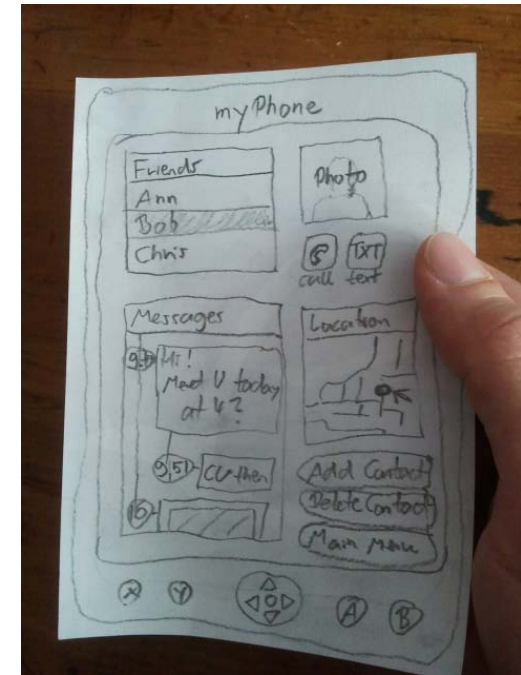 myPhone
Friends
Ann
Bob
Chris
Photo
TXT
call text
Messages
Hi!
Meet U today
at 4?
CU then
Location
Add Contact
Delete Contact
Main Menu
X Y A B